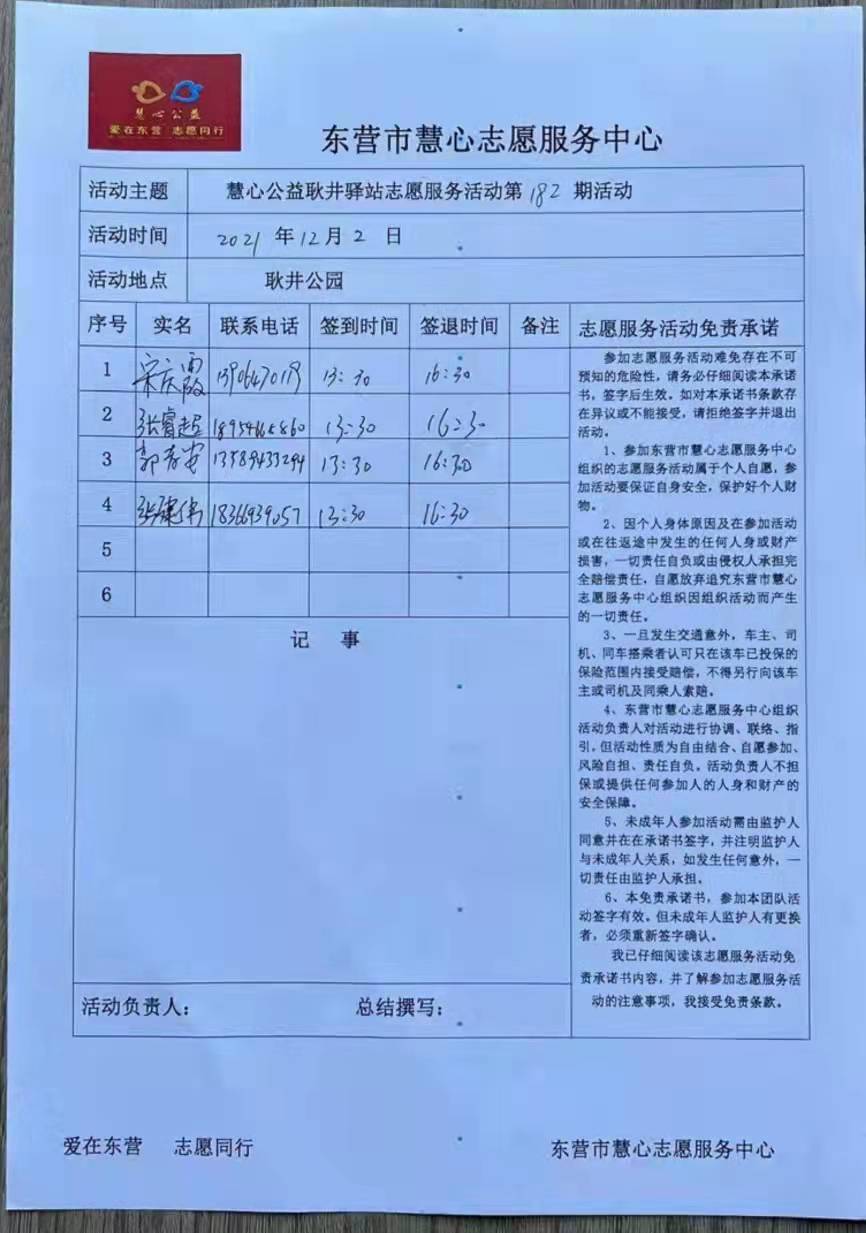 慧心公益
爱在东营 志愿同行
东营市慧心志愿服务中心
活动主题 慧心公益耿井驿站志愿服务活动第182期活动
活动时间 2021年12月2日
活动地点 耿井公园
序号 实名 联系电话 签到时间 签退时间 备注
1 宋庆霞 13:30 16:30
2 张睿超 13:30 16:30
3 13589433294 13:30 16:30
4 张建伟 18366939057 13:30 16:30
5
6
记 事
活动负责人： 总结撰写：
志愿服务活动免责承诺
参加志愿服务活动难免存在不可
预知的危险性，请务必仔细阅读本承诺
书，签字后生效。如对本承诺书条款存
在异议或不能接受，请拒绝签字并退出
活动。
1、参加东营市慧心志愿服务中心
组织的志愿服务活动属于个人自愿，参
加活动要保证自身安全，保护好个人财
物。
2、因个人身体原因及在参加活动
或在往返途中发生的任何人身或财产
损害，一切责任自负或由侵权人承担完
全赔偿责任，自愿放弃追究东营市慧心
志愿服务中心组织因组织活动而产生
的一切责任。
3、一旦发生交通意外，车主、司
机、同车搭乘者认可只在该车已投保的
保险范围内接受赔偿，不得另行向该车
主或司机及同乘人索赔。
4、东营市慧心志愿服务中心组织
活动负责人对活动进行协调、联络、指
引，但活动性质为自由结合、自愿参加、
风险自担、责任自负。活动负责人不担
保或提供任何参加人的人身和财产的
安全保障。
5、未成年人参加活动需由监护人
同意并在在承诺书签字，并注明监护人
与未成年人关系，如发生任何意外，一
切责任由监护人承担。
6、本免责承诺书，参加本团队活
动签字有效。但未成年人监护人有更换
者，必须重新签字确认。
我已仔细阅读该志愿服务活动免
责承诺书内容，并了解参加志愿服务活
动的注意事项，我接受免责条款。
爱在东营 志愿同行
东营市慧心志愿服务中心